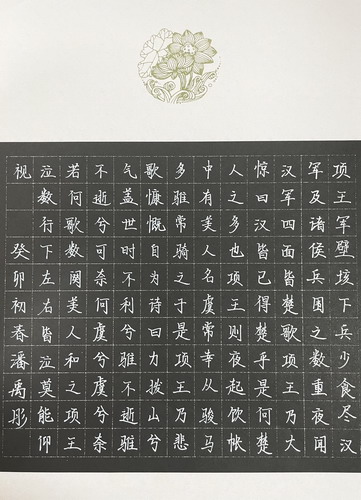 项王军壁垓下兵少食尽汉
军及诸侯兵围之数重夜闻
汉军四面皆楚歌项王乃大
惊曰汉皆已得楚乎是何楚
人之多也项王则夜起饮帐
中有美人名虞常幸从骏马
名骓常骑之于是项王乃悲
歌慷慨自为诗曰力拔山兮
气盖世时不利兮骓不逝骓
不逝兮可奈何虞兮虞兮奈
若何歌数阕美人和之项王
泣数行下左右皆泣莫能仰
视 癸卯初春潘禹彤